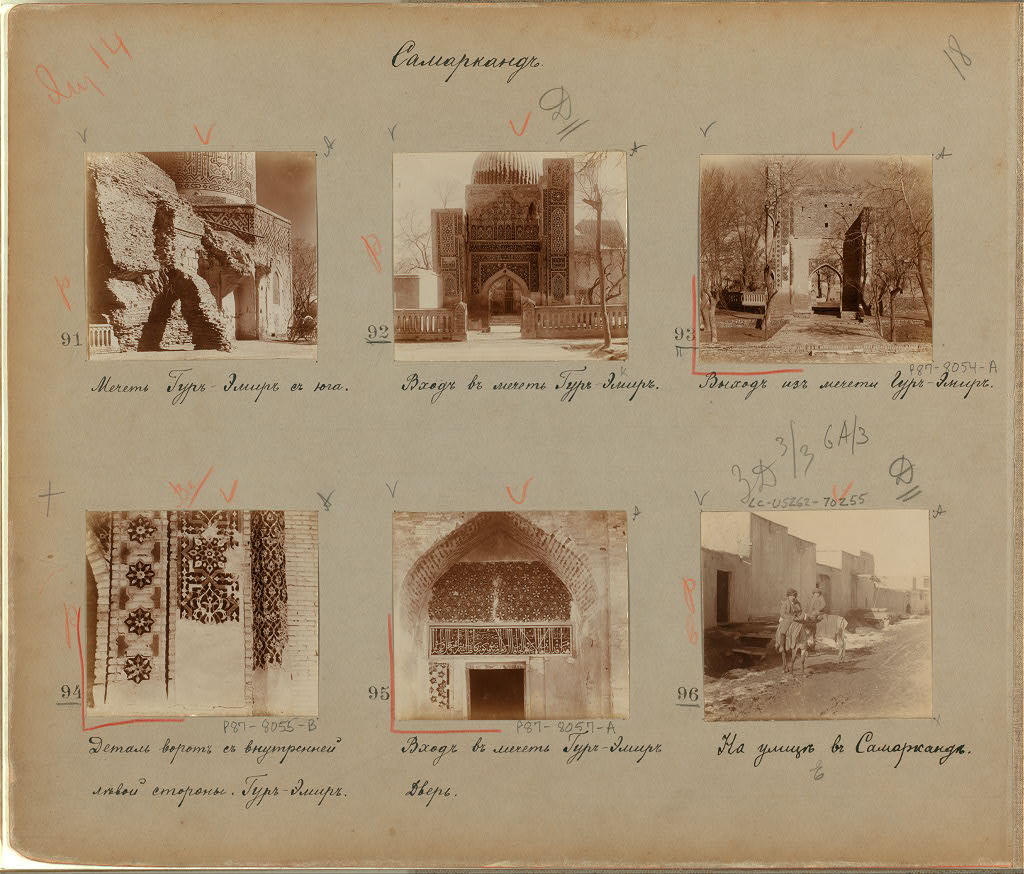 14
Самаркандъ.
18
Д
А
А
А
р
р
91
92
93
P87-8054-A
Мечеть Гуръ-Эмиръ съ юга.
Входъ въ мечеть Гуръ-Эмиръ.
Выходъ изъ мечети Гуръ-Эмиръ.
3Д 3/3 6А/3
Д
LC-USZ62-70255
А
А
94
95
96
P87-8055-B
P87-8057-A
Деталь воротъ съ внутренней
лѣвой стороны. Гуръ-Эмиръ.
Входъ въ мечеть Гуръ-Эмиръ
Дверь.
На улицѣ въ Самаркандѣ.